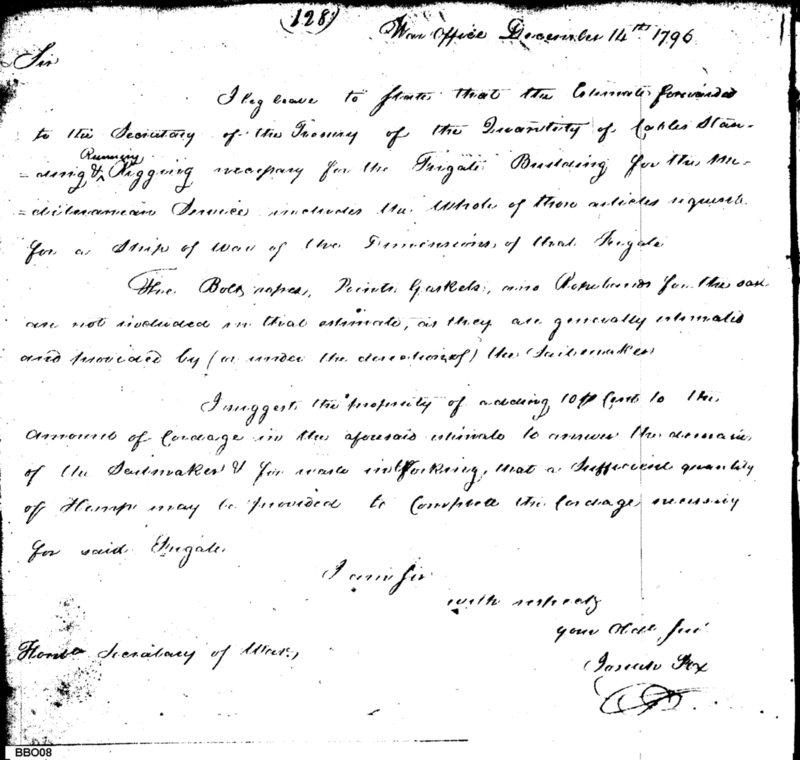 (128)
War Office December 14th 1796
Sir
I beg leave to state that the Estimate forwarded
to the Secretary of the Treasury of the Quantity of Cables Stan-
Running
=ding & Rigging necessary for the Frigate Building for the Me-
=diterranean Service includes the whole of those articles requisite
for a Ship of War of the Dimensions of that Frigate
The Bolt ropes, Points Gaskets, and Robands for the
are not included in that estimate, as they are generally estimated
and provided by (or under the direction of) the Sailmaker
I suggest the propriety of adding 10 p Cent to the
amount of Cordage in the aforesaid estimate to answer the demands
of the Sailmaker & for waste in Working, that a Sufficient quantity
of Hemp may be provided to Complete the Cordage necessary
for said Frigate
I am Sir
with respect
your Obdt. Sert
Josiah Fox
Honble Secretary of War,
BBO08